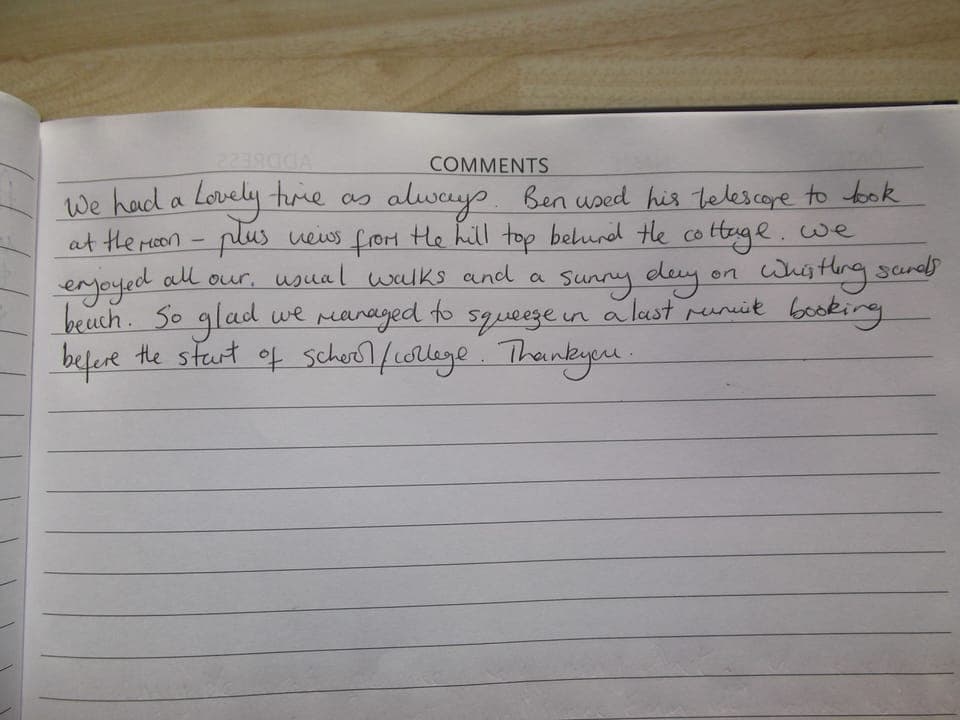 COMMENTS
We had a Lovely time as always. Ben used his telescope to look
at the moon - plus views from the hill top behind the cottage. We
enjoyed all our. usual walks and a sunny day on Whistling sands
beach. So glad we managed to squeeze in a last minute booking
before the start of school/college. Thankyou.